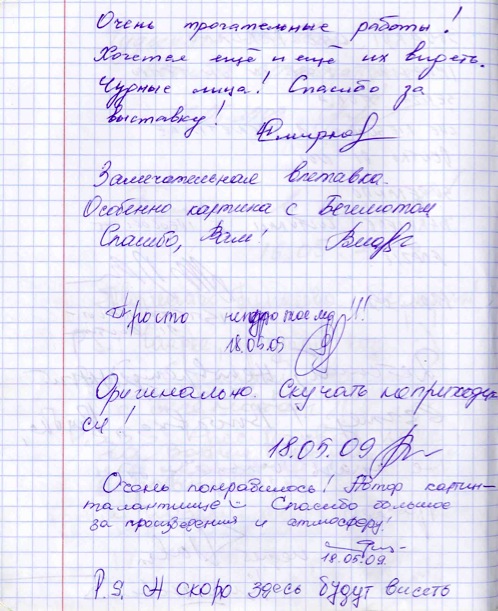 Очень трогательные работы!
Хочется ещё и ещё их видеть.
Чудные лица! Спасибо за
выставку!
Замечательная выставка.
Особенно картина с Бегемотом
Спасибо, Вам!
Просто !!!
18.05.09
Оригинально. Скучать не приходит
ся!
18.05.09
Очень понравилось! Автор картин-
талантище Спасибо большое
за произведения и атмосферу!
18.05.09.
P.S. А скоро здесь будут висеть